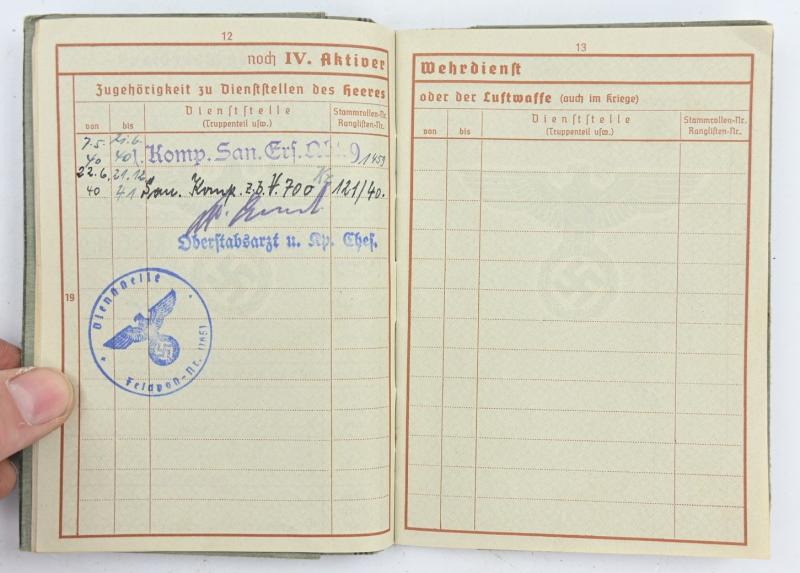 12
noch IV. Aktiver
Zugehörigkeit zu Dienststellen des Heeres
von
bis
Dienststelle
(Truppenteil usw.)
Stammrollen-Nr.
Ranglisten-Nr.
7.5. 21.6.
40 40 1. Komp. San. Ers. Abt. 9 1459
22.6. 21.12.
40 41 San. Komp. z.b.V. 700 121/40.
Oberstabsarzt u. Kp. Chef.
19
Dienststelle
Feldpost-Nr.
13
Wehrdienst
oder der Luftwaffe (auch im Kriege)
von
bis
Dienststelle
(Truppenteil usw.)
Stammrollen-Nr.
Ranglisten-Nr.